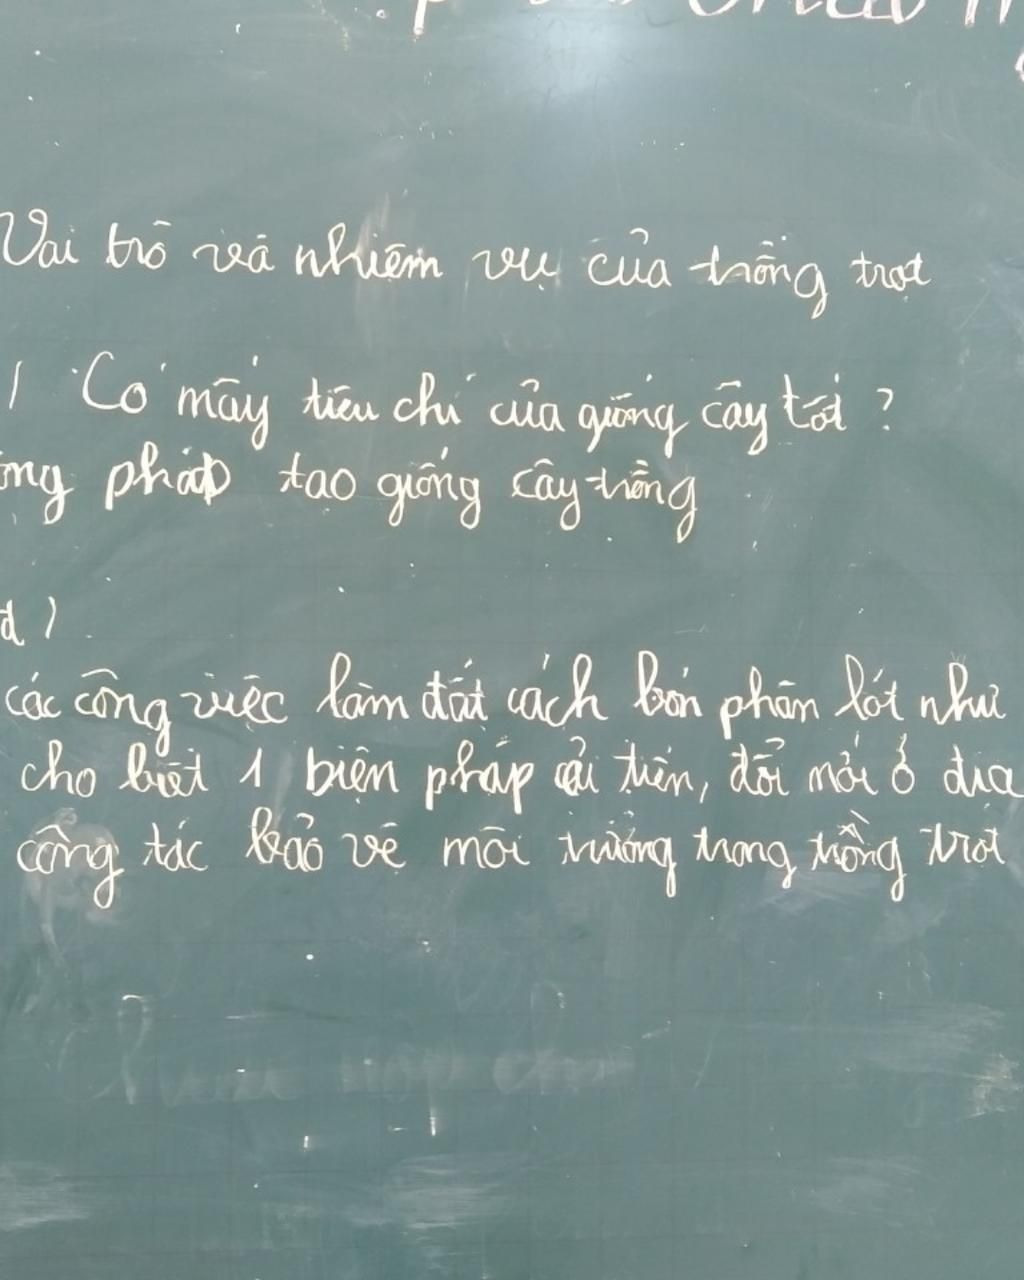 Vai trò và nhiệm vụ của trồng trọt
1 Có mấy tiêu chí của giống cây tốt ?
ng pháp tạo giống cây trồng
các công việc làm đất cách bón phân lót như
cho biết 1 biện pháp cải tiến, đổi mới ở địa
công tác bảo vệ môi trường trong trồng trọt